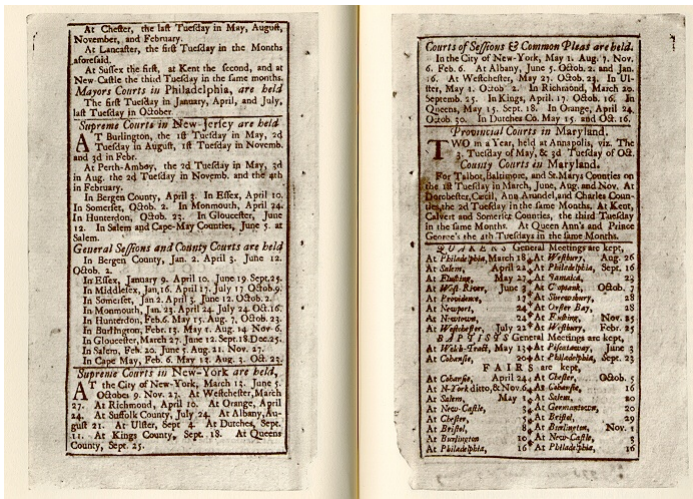 At Chester, the last Tuesday in May, August,
November, and February.
At Lancaster, the first Tuesday in the Months
aforesaid.
At Sussex the first, at Kent the second, and at
New Castle the third Tuesday in the same months.
Mayors Courts in Philadelphia, are held
The first Tuesday in January, April, and July,
last Tuesday in October.
Supreme Courts in New-Jersey are held
AT Burlington, the 1st Tuesday in May, 2d
Tuesday in August, 1st Tuesday in Novemb.
and 3d in Febr.
At Perth-Amboy, the 2d Tuesday in May, 3d
in Aug. the 2d Tuesday in Novemb. and the 4th
in February.
In Bergen County, April 3. In Essex, April 10.
In Somerset, Octob. 2. In Monmouth, April 24.
In Hunterdon, Octob. 23. In Gloucester, June
12. In Salem and Cape-May Counties, June 5. at
Salem.
General Sessions and County Courts are held
In Bergen County, Jan. 2. April 3. June 12.
Octob. 2.
In Essex, January 9. April 10. June 19. Sept. 25.
In Middlesex, Jan, 16. April 17. July 17. Octob. 9.
In Somerset, Jan 2. April 3. June 12. Octob. 2.
In Monmouth, Jan. 23. April 24. July 24. Oct. 16.
In Hunterdon, Feb. 6. May 15. Aug. 7. Octob. 23.
In Burlington, Febr. 13. May 1. Aug. 14. Nov. 6.
In Gloucester, March 27. June 12. Sept. 18. Dec. 25.
In Salem, Feb. 20. June 5. Aug. 21. Nov. 27.
In Cape May, Feb. 6. May 15. Aug. 3. Oct. 23.
Supreme Courts in New-York are held,
AT the City of New-York, March 13. June 5.
October 9. Nov. 27. At Westchester, March
27. At Richmond, April 10. At Orange, April
24. At Suffolk County, July 24. At Albany, Au-
gust 21. At Ulster, Sept 4. At Dutches, Sept.
11. At Kings County, Sept. 18. At Queens
County, Sept. 25.
Courts of Sessions & Common Pleas are held.
In the City of New-York, May 1. Aug. 7. Nov.
6. Feb. 6. At Albany, June 5. Octob. 2. and Jan.
16. At Westchester, May 27. Octob. 23. In Ul-
ster, May 1. Octob 2. In Richmond, March 20.
Septemb. 25. In Kings, April. 17. Octob. 16. In
Queens, May 15. Sept. 18. In Orange, April 24.
Octob. 30. In Dutches Co. May 15. and Oct. 16.
Provincial Courts in Maryland.
TWO in a Year, held at Annapolis, viz. The
3. Tuesday of May, & 3d Tuesday of Oct.
County Courts in Maryland.
For Talbot, Baltimore, and St. Marys Counties on
the 1st Tuesday in March, June, Aug. and Nov. At
Dorchester, Cecil, Ann Arundel, and Charles Coun-
ties, the 2d Tuesday in the same Months. At Kent,
Calvert and Somerset Counties, the third Tuesday
in the same Months. At Queen Ann's and Prince
George's the 4th Tuesdays in the same Months.
QUAKERS General Meetings are kept,
At Philadelphia, March 18 At Westbury, Aug. 26
At Salem, April 22 At Philadelphia, Sept. 16
At Flushing, May 27 At Jamaica, 29
At West-River, June 3 At Coptank, Octob. 7
At Providence, 17 At Shrewsbury, 28
At Newport, 24 At Oyster Bay, 28
At Newtown, 24 At Flushing, Nov. 25
At Westchester, July 22 At Westbury, Febr. 25
BAPTISTS General Meetings are kept,
At Welsh-Tract, May 13 At Piscataway, June 3
At Cohansie, 20 At Philadelphia, Sept. 23
FAIRS are kept,
At Cohansie, April 24 At Chester, Octob. 5
At N-York ditto, & Nov. 6 At Cohansie, 16
At Salem, May 1 At Salem, 20
At New-Castle, 3 At Germantown, 20
At Chester, 5 At Bristol, 29
At Bristol, 8 At Burlington, Nov. 1
At Burlington 10 At New-Castle, 3
At Philadelphia, 16 At Philadelphia, 16